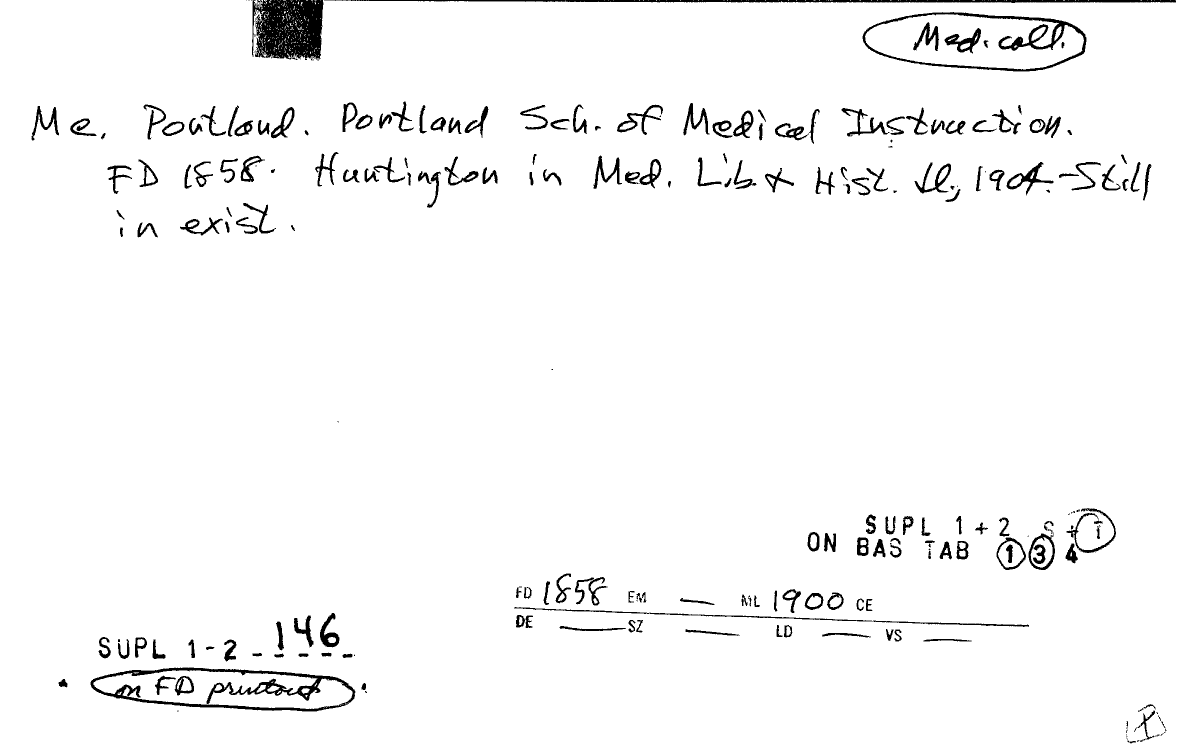 Med. coll.
Me. Portland. Portland Sch. of Medical Instruction.
FD 1858. Huntington in Med. Lib. & Hist. Jl., 1904. - Still
in exist.
SUPL 1+2 S+T
ON BAS TAB 1 3 4
FD 1858 EM — ML 1900 CE
DE — SZ — LD — VS —
SUPL 1-2 - 146
on FD printout
P